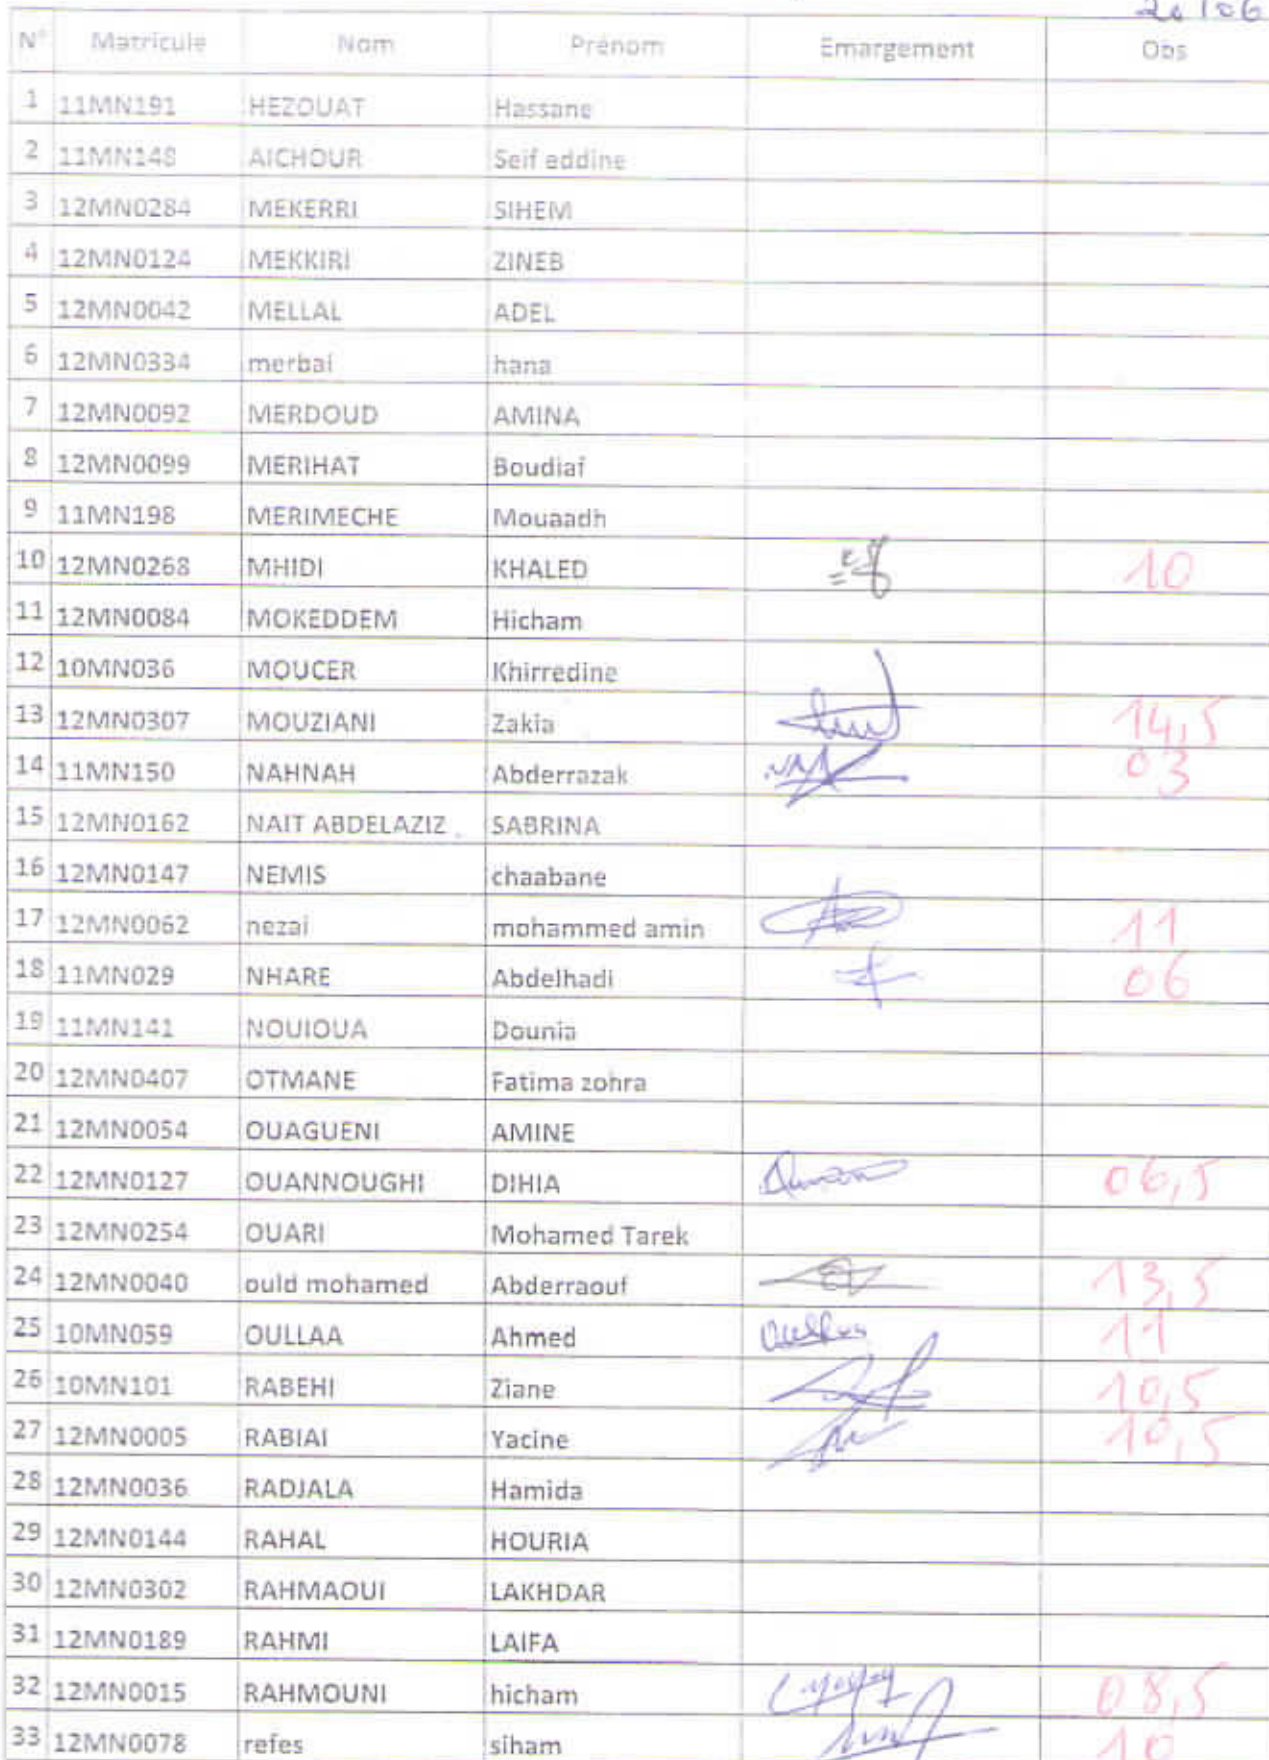 N° Matricule Nom Prénom Emargement Obs
1 11MN191 HEZOUAT Hassane
2 11MN148 AICHOUR Seif eddine
3 12MN0284 MEKERRI SIHEM
4 12MN0124 MEKKIRI ZINEB
5 12MN0042 MELLAL ADEL
6 12MN0334 merbai hana
7 12MN0092 MERDOUD AMINA
8 12MN0099 MERIHAT Boudiaf
9 11MN198 MERIMECHE Mouaadh
10 12MN0268 MHIDI KHALED 10
11 12MN0084 MOKEDDEM Hicham
12 10MN036 MOUCER Khirredine
13 12MN0307 MOUZIANI Zakia 14,5
14 11MN150 NAHNAH Abderrazak 03
15 12MN0162 NAIT ABDELAZIZ SABRINA
16 12MN0147 NEMIS chaabane
17 12MN0062 nezai mohammed amin 11
18 11MN029 NHARE Abdelhadi 06
19 11MN141 NOUIOUA Dounia
20 12MN0407 OTMANE Fatima zohra
21 12MN0054 OUAGUENI AMINE
22 12MN0127 OUANNOUGHI DIHIA 06,5
23 12MN0254 OUARI Mohamed Tarek
24 12MN0040 ould mohamed Abderraouf 13,5
25 10MN059 OULLAA Ahmed 11
26 10MN101 RABEHI Ziane 10,5
27 12MN0005 RABIAI Yacine 10,5
28 12MN0036 RADJALA Hamida
29 12MN0144 RAHAL HOURIA
30 12MN0302 RAHMAOUI LAKHDAR
31 12MN0189 RAHMI LAIFA
32 12MN0015 RAHMOUNI hicham 08,5
33 12MN0078 refes siham 10